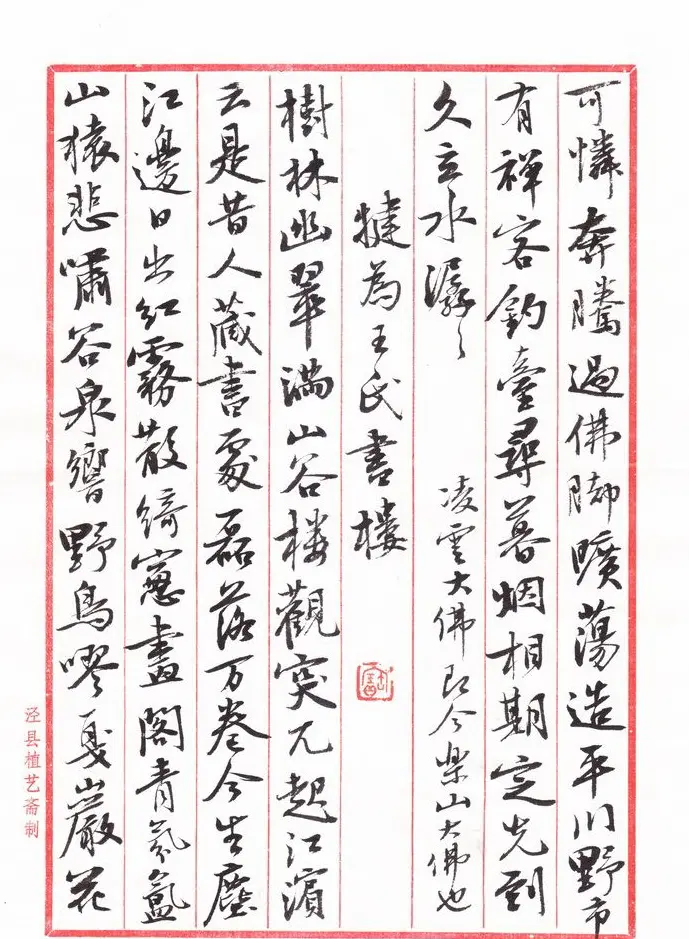 可憐奔騰過佛脚曠蕩造平川野市
有禅客釣臺尋暮烟相期定先到
久立水潺〻
凌雲大佛即今樂山大佛也
犍為王氏書樓
樹林幽翠满山谷楼觀突兀起江濱
云是昔人藏書處磊落万卷今生塵
江邊日出红霧散綺窻畫閣青氛氳
山猿悲嘯谷泉響野鳥嘐戛巖花
泾县植艺斋制